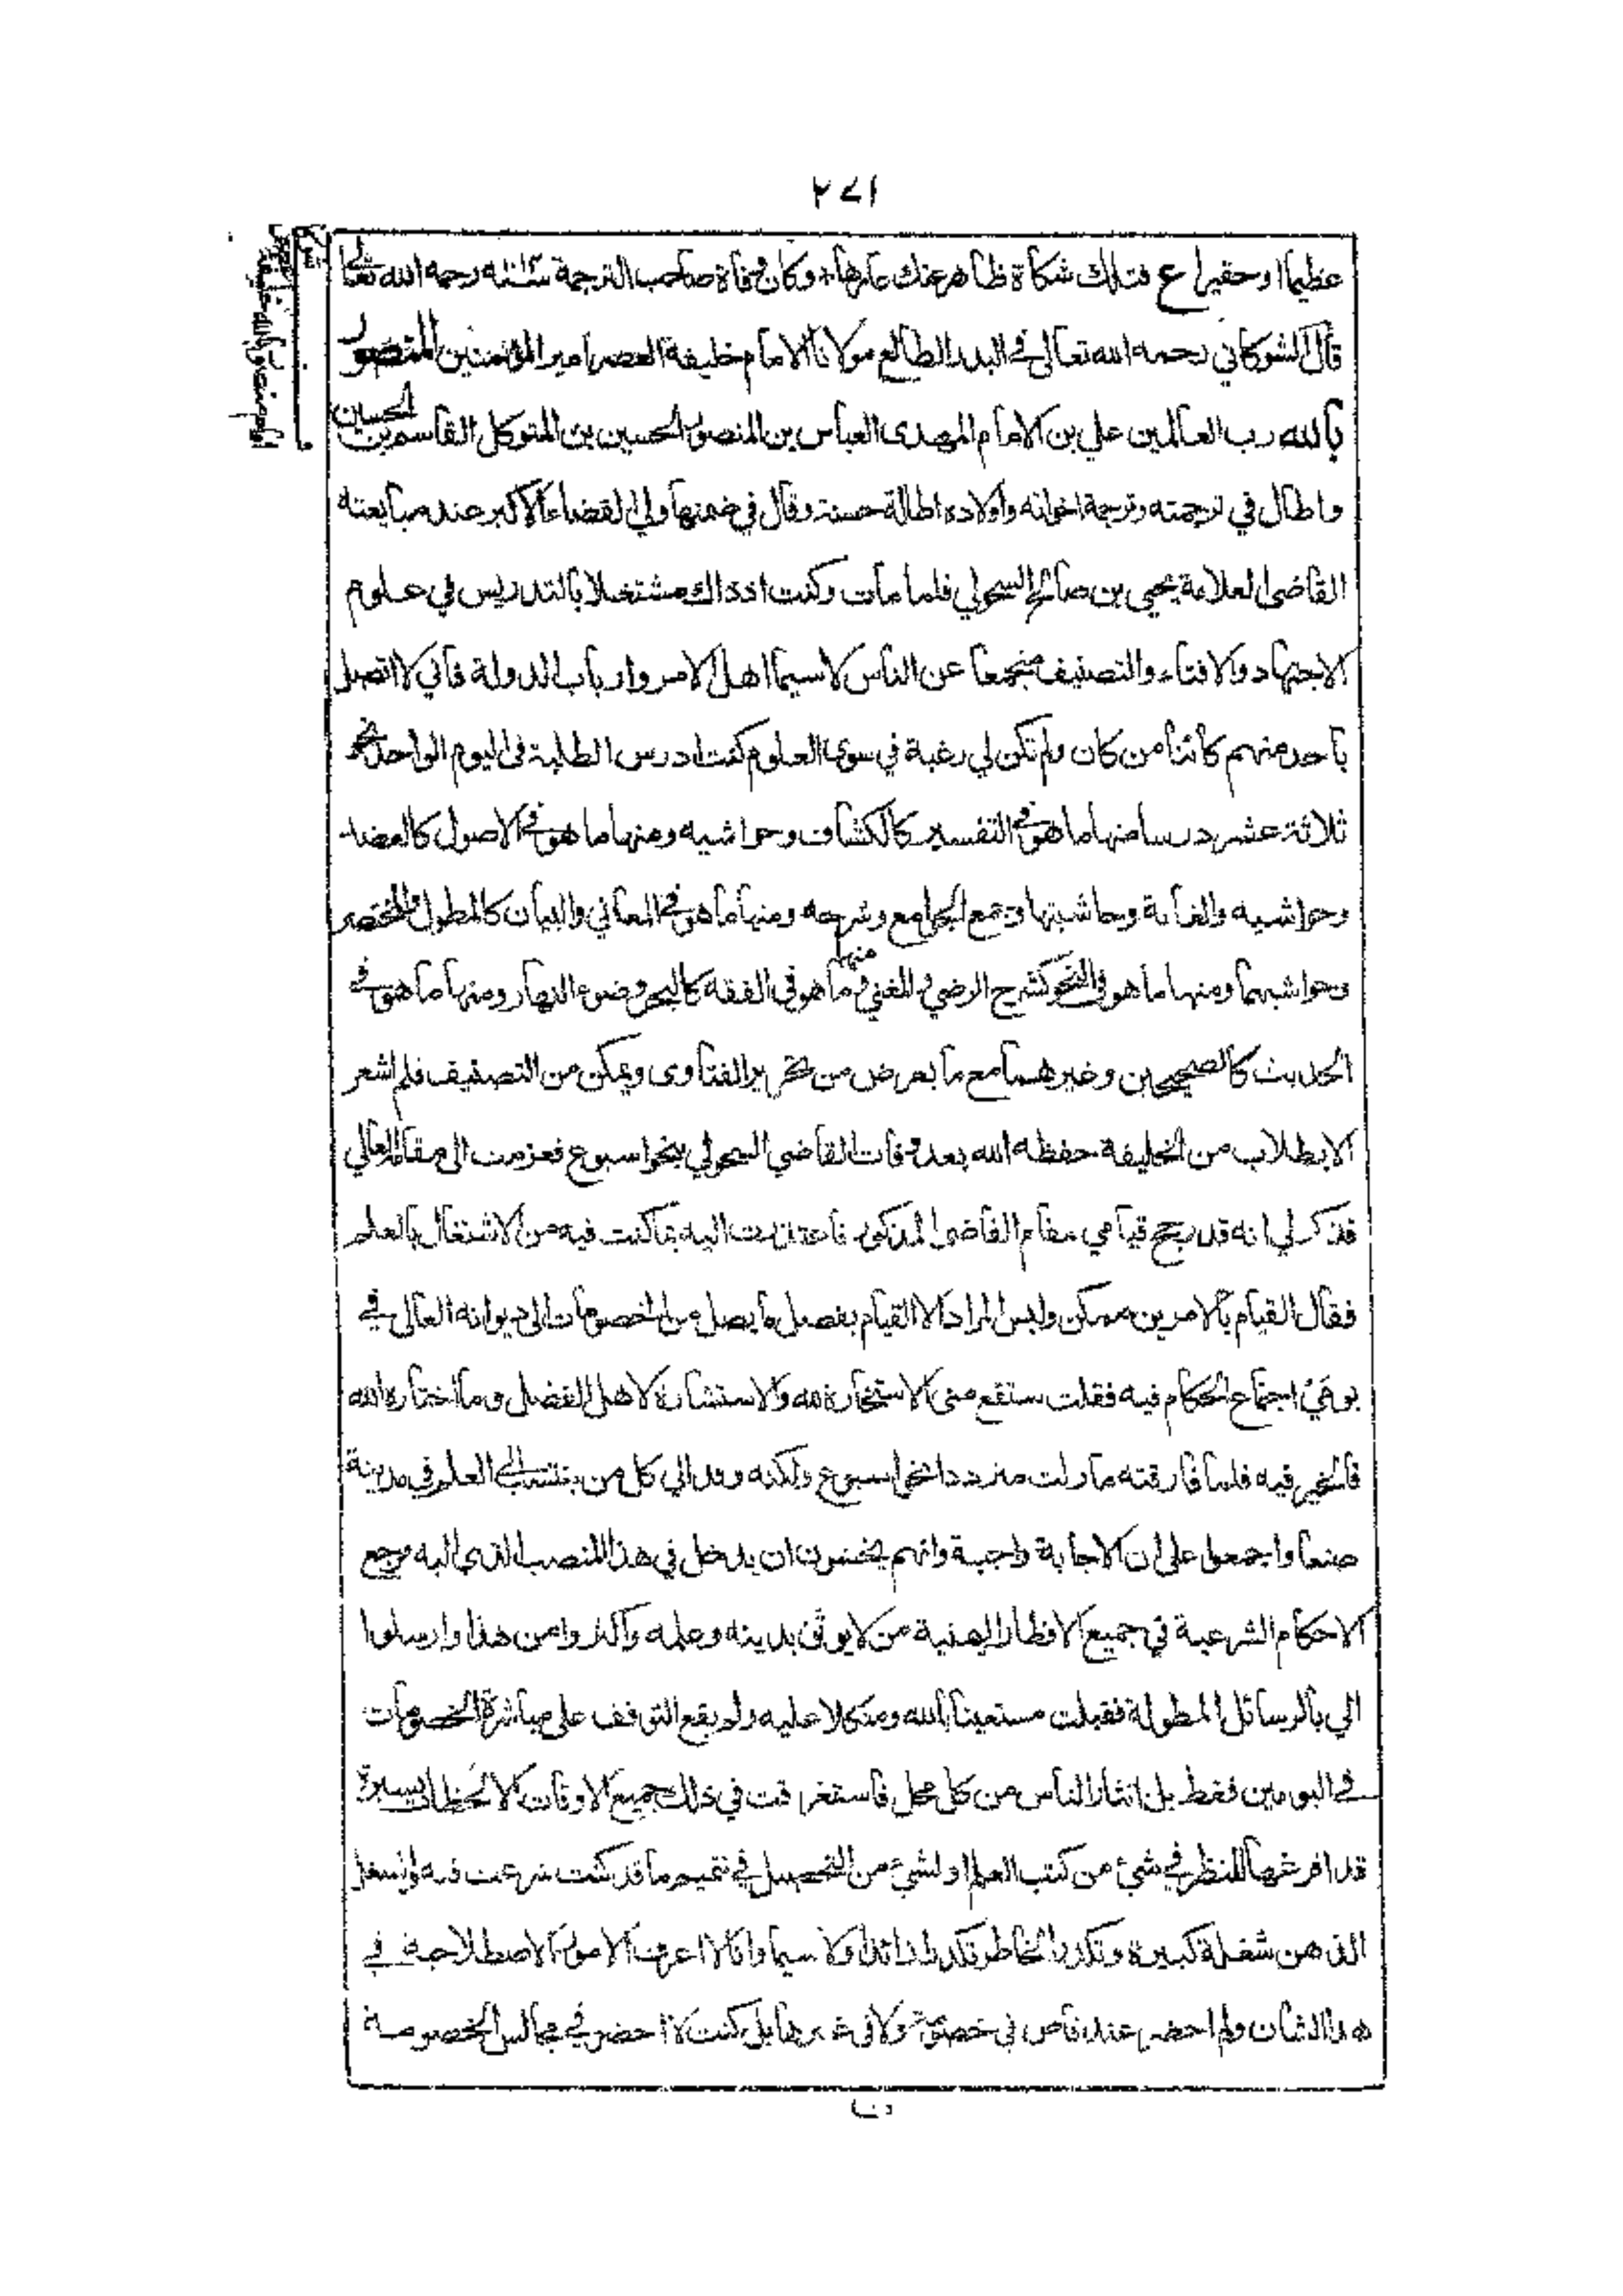 ٢٧١
عظيما او حقيرا ع فتلك شكاة ظاهر عنك عارها + وكان وفاة صاحب الترجمة رحمه الله تعالى
قال الشوكاني رحمه الله تعالى في البدر الطالع مولانا الامام خليفة العصر امير المؤمنين المنصور
بالله رب العالمين علي بن الامام المهدى العباس بن المنصور الحسين بن المتوكل القاسم بن الحسين
واطال في ترجمته وترجمة اخوانه واولاده اطالة حسنة وقال في ضمنها ولي القضاء الاكبر عند مبايعته
القاضى العلامة يحيى بن صالح السحولي فلما مات وكنت اذ ذاك مشتغلا بالتدريس في علوم
الاجتهاد والافتاء والتصنيف منجمعا عن الناس لاسيما اهل الامر وارباب الدولة فاني لا اتصل
باحد منهم كائنا من كان ولم تكن لي رغبة في سوى العلوم كنت ادرس الطلبة فى اليوم الواحد نحو
ثلاثة عشر درسا منها ما هو في التفسير كالكشاف وحواشيه ومنها ما هو في الاصول كالعضد
وحواشيه والغاية وحاشيتها وجمع الجوامع وشرحه ومنها ما هو في المعاني والبيان كالمطول والمختصر
وحواشيهما ومنها ما هو في النحو كشرح الرضي والمغني ومنها ما هو فى الفقه كالبحر وضوء النهار ومنها ما هو في
الحديث كالصحيحين وغيرهما مع ما يعرض من تحرير الفتاوى ويمكن من التصنيف فلم اشعر
الا بطلاب من الخليفة حفظه الله بعد وفات القاضي السحولي بنحو اسبوع فعزمت الى مقامه العالي
فذكر لي انه قد رجح قيامي مقام القاضى المذكور فاعتذرت اليه بما كنت فيه من الاشتغال بالعلم
فقال القيام بالامرين ممكن وليس المراد الا القيام بفصل ما يصل من الخصومات الى ديوانه العالى في
يومي اجتماع الحكام فيه فقلت ستقع منى الاستخارة لله والاستشارة لاهل الفضل وما اختاره الله
فالخير فيه فلما فارقته ما زلت مترددا نحو اسبوع ولكنه وفد الي كل من ينتسب الى العلم في مدينة
صنعا واجمعوا على ان الاجابة واجبة وانهم يخشون ان يدخل في هذا المنصب الذي اليه مرجع
الاحكام الشرعية في جميع الاقطار اليمنية من لا يوثق بدينه وعلمه واكثروا من هذا وارسلوا
الي بالرسائل المطولة فقبلت مستعينا بالله ومتكلا عليه ولم يقع التوقف على مباشرة الخصومات
في اليومين فقط بل انثال الناس من كل محل فاستغرقت في ذلك جميع الاوقات الا لحظات يسيرة
قد افرغها للنظر في شيء من كتب العلم او لشيء من التحصيل في تتميم ما قد كنت شرعت فيه واشتغل
الذهن شغلة كبيرة وتكدر الخاطر تكدرا زائدا ولا سيما وانا لا اعرف الامور الاصطلاحية في
هذا الشان ولم احضر عند قاض في خصومة ولا في غيرها بل كنت لا احضر في مجالس الخصومة